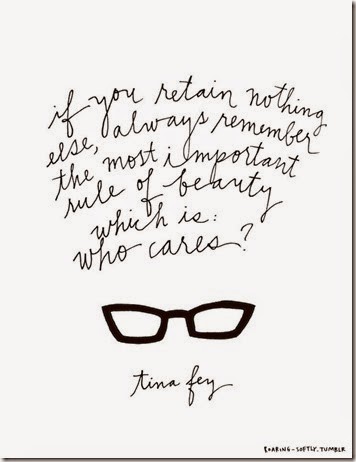 if you retain nothing
else, always remember
the most important
rule of beauty
which is:
who cares?
tina fey
ROARING-SOFTLY.TUMBLR